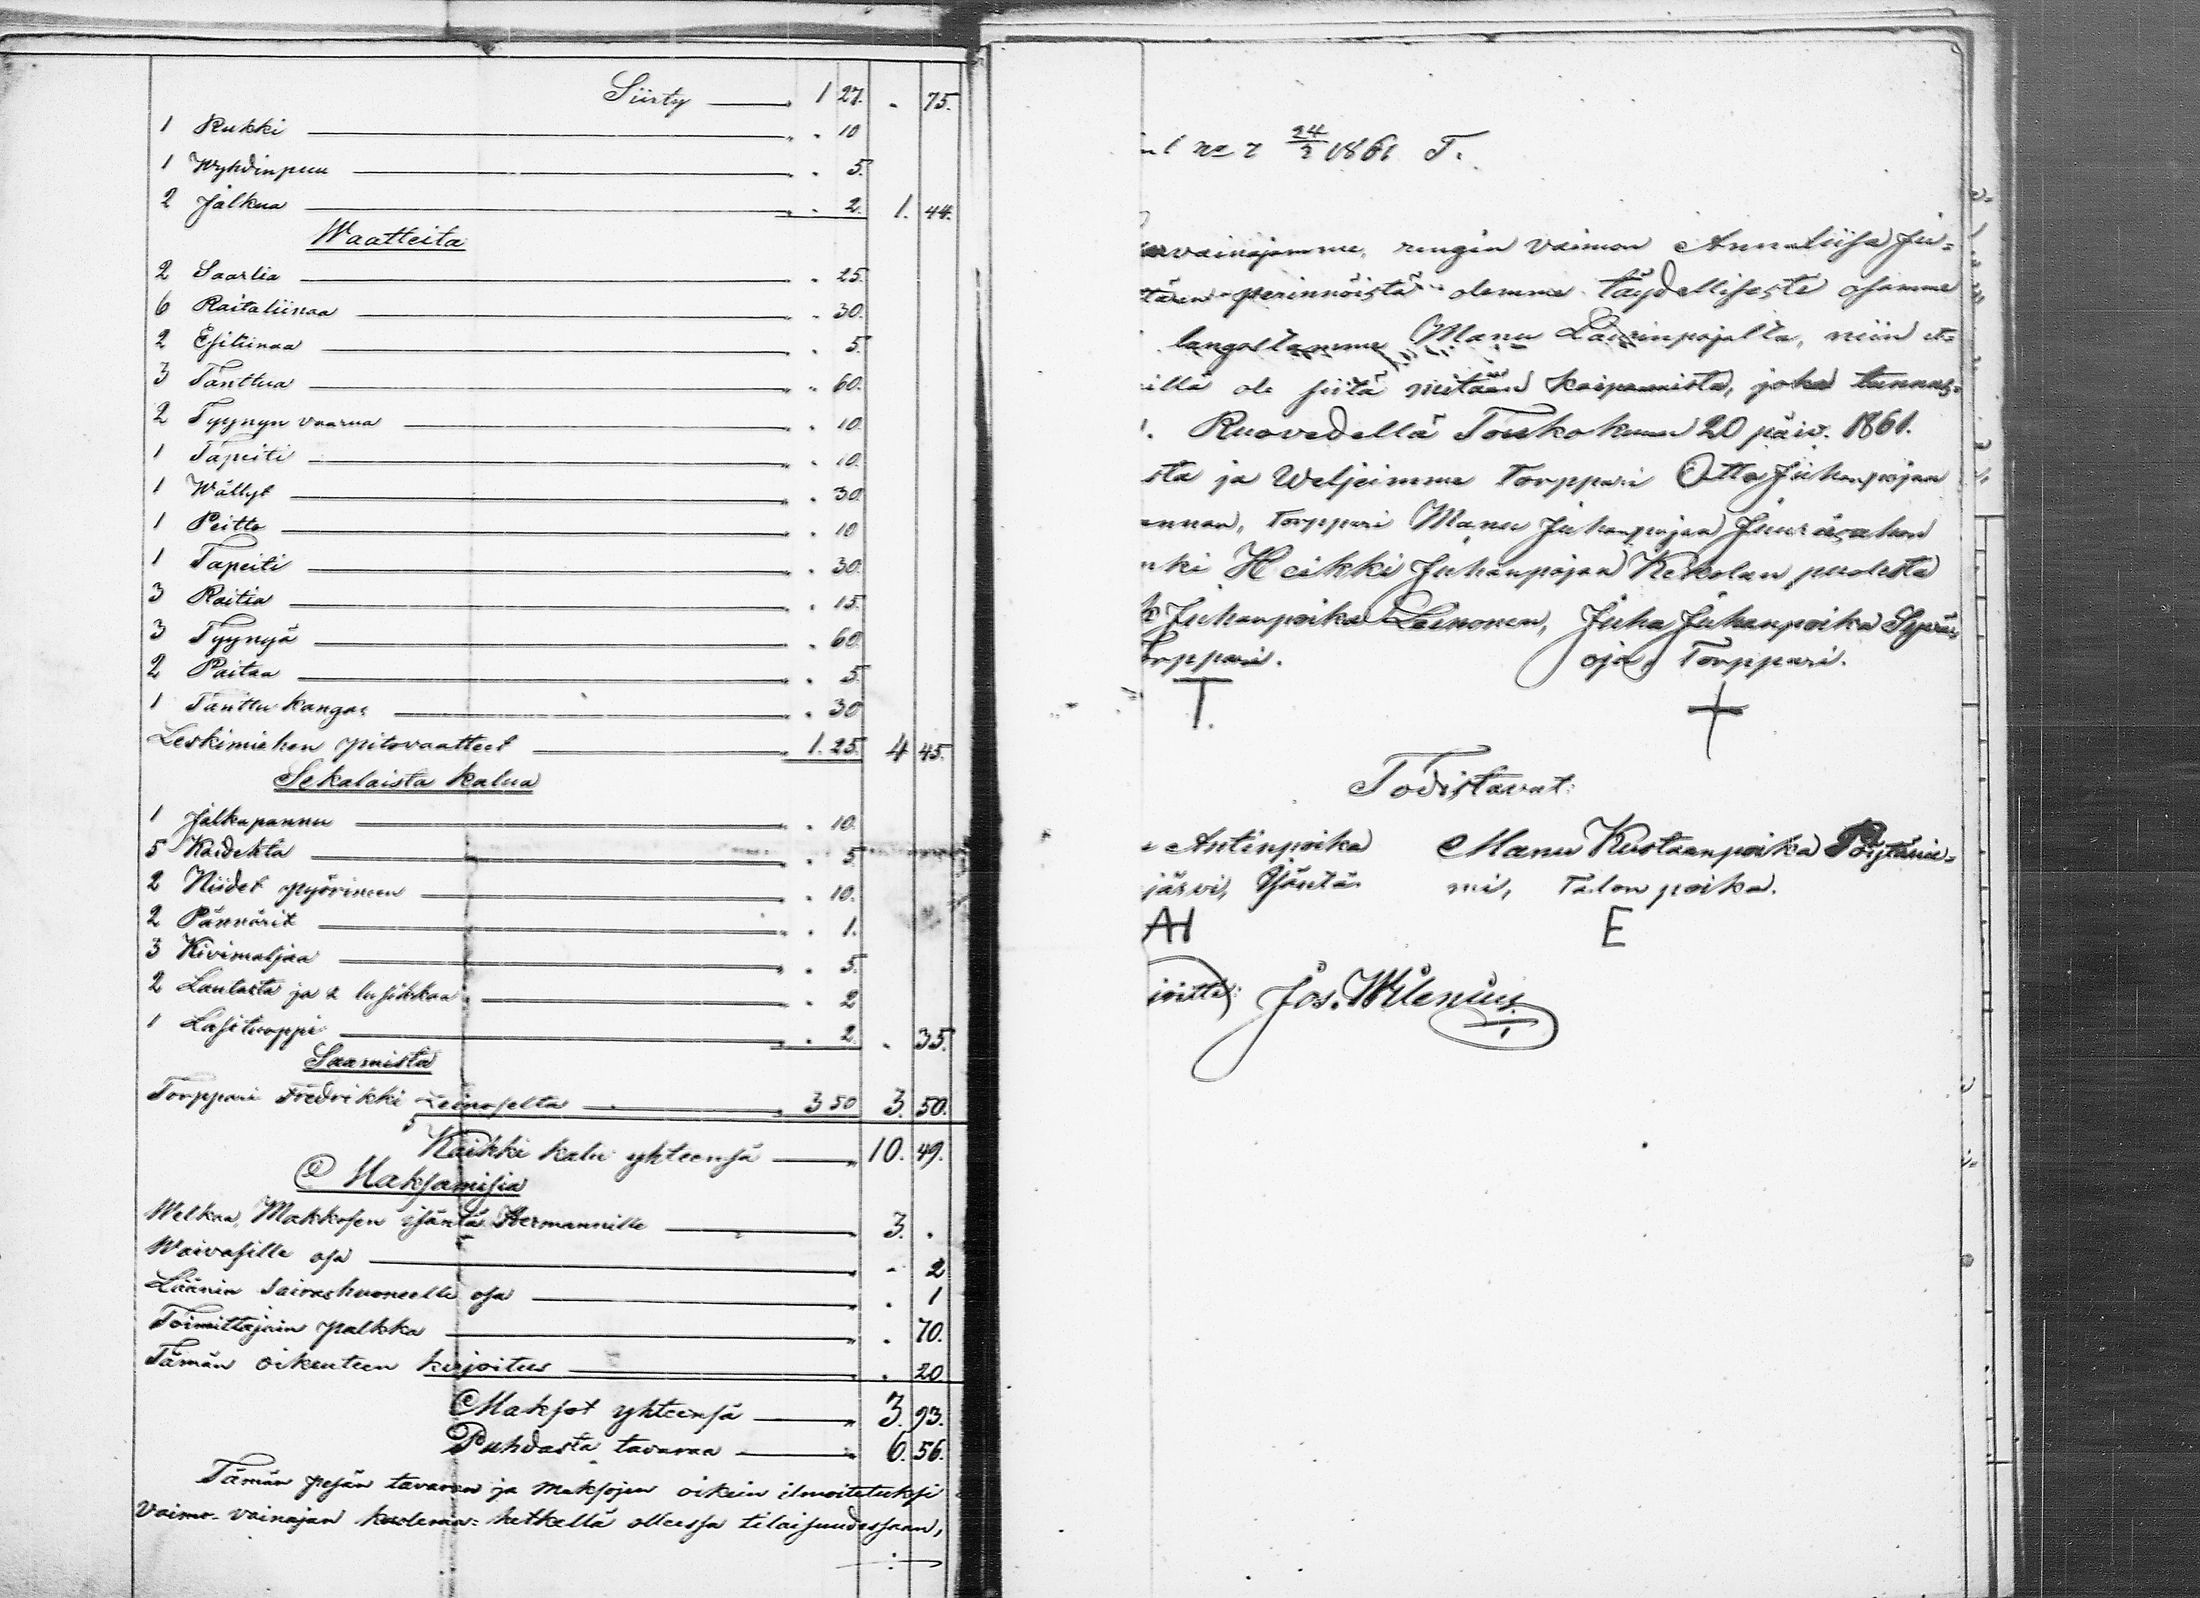 Siirty — „ 1 27. „ 75.
1 Rukki — „ „ 10
1 Wyhdinpuu — „ „ 5.
2 Jalkua — „ „ 2. 1. 44.
Waatteita
2 Saarlia — „ 25.
6 Raitaliinaa — „ 30.
2 Esiliinaa — „ 5.
3 Tänttuä — „ 60.
2 Tyynyn vaarua — „ 10.
1 Tapeiti — „ 10.
1 Wällyt — „ 30.
1 Peitto — „ 10
1 Tapeiti — „ 30.
3 Raitia — „ 15.
3 Tyynyä — „ 60.
2 Paitaa — „ 5.
1 Tänttu kangas — „ 30
Leskimiehen pitovaatteet — 1. 25. 4 45.
Sekalaista kalua
1 Jalkapannu — „ 10.
5 Kaidehta — „ 5
2 Niidet pyörineen — „ 10.
2 Pännärit — „ 1.
3 Kivimaljaa — „ 5.
2 Lautasta ja 2 lusikkaa — „ 2
1 Lasituoppi — „ 2. „ 35.
Saamista
Torppari Fredrikki Leinoselta — 3 50 3. 50.
Kaikki kalu yhteensä — „ 10. 49.
Maksamisia
Welkaa, Makkosen isäntä Hermannille — 3. „
Waivasille osa — „ 2
Läänin sairashuoneelle osa — „ 1
Toimittajain palkka — „ 70.
Tämän oikeuteen kirjoitus — „ 20
Maksot yhteensä — „ 3. 93.
Puhdasta tavaraa — „ 6. 56.
Tämän pesän tavaran ja maksojen oikein ilmoitetuksi
vaimo-vainajan kuolema-hetkellä olleessa tilaisuudessaan,
24/3 1861 T.
vainajamme, rengin vaimon Annaliisa Ju=
tären perinnöistä olemme täydellisesti osamme
langoltamme Manu Laurinpojalta, niin et=
illä ole siitä mitään kaipaamista, joka tunnus=
. Ruovedellä Toukokuun 20 päiv. 1861.
sta ja Weljeimme Torppari Otto Juhanpojan
annan, Torppari Manu Juhanpojan Juurisahon
nki Heikki Juhanpojan Kekolan puolesta
k Juhanpoika Leinonen, Juha Juhanpoika Syvän
orppari. oja, Torppari.
T. +
Todistavat:
Antinpoika Manu Kustaanpoika Pöytänie=
järvi, Isäntä. mi, Talon poika.
AH E
joitti: Jos. Wilenius